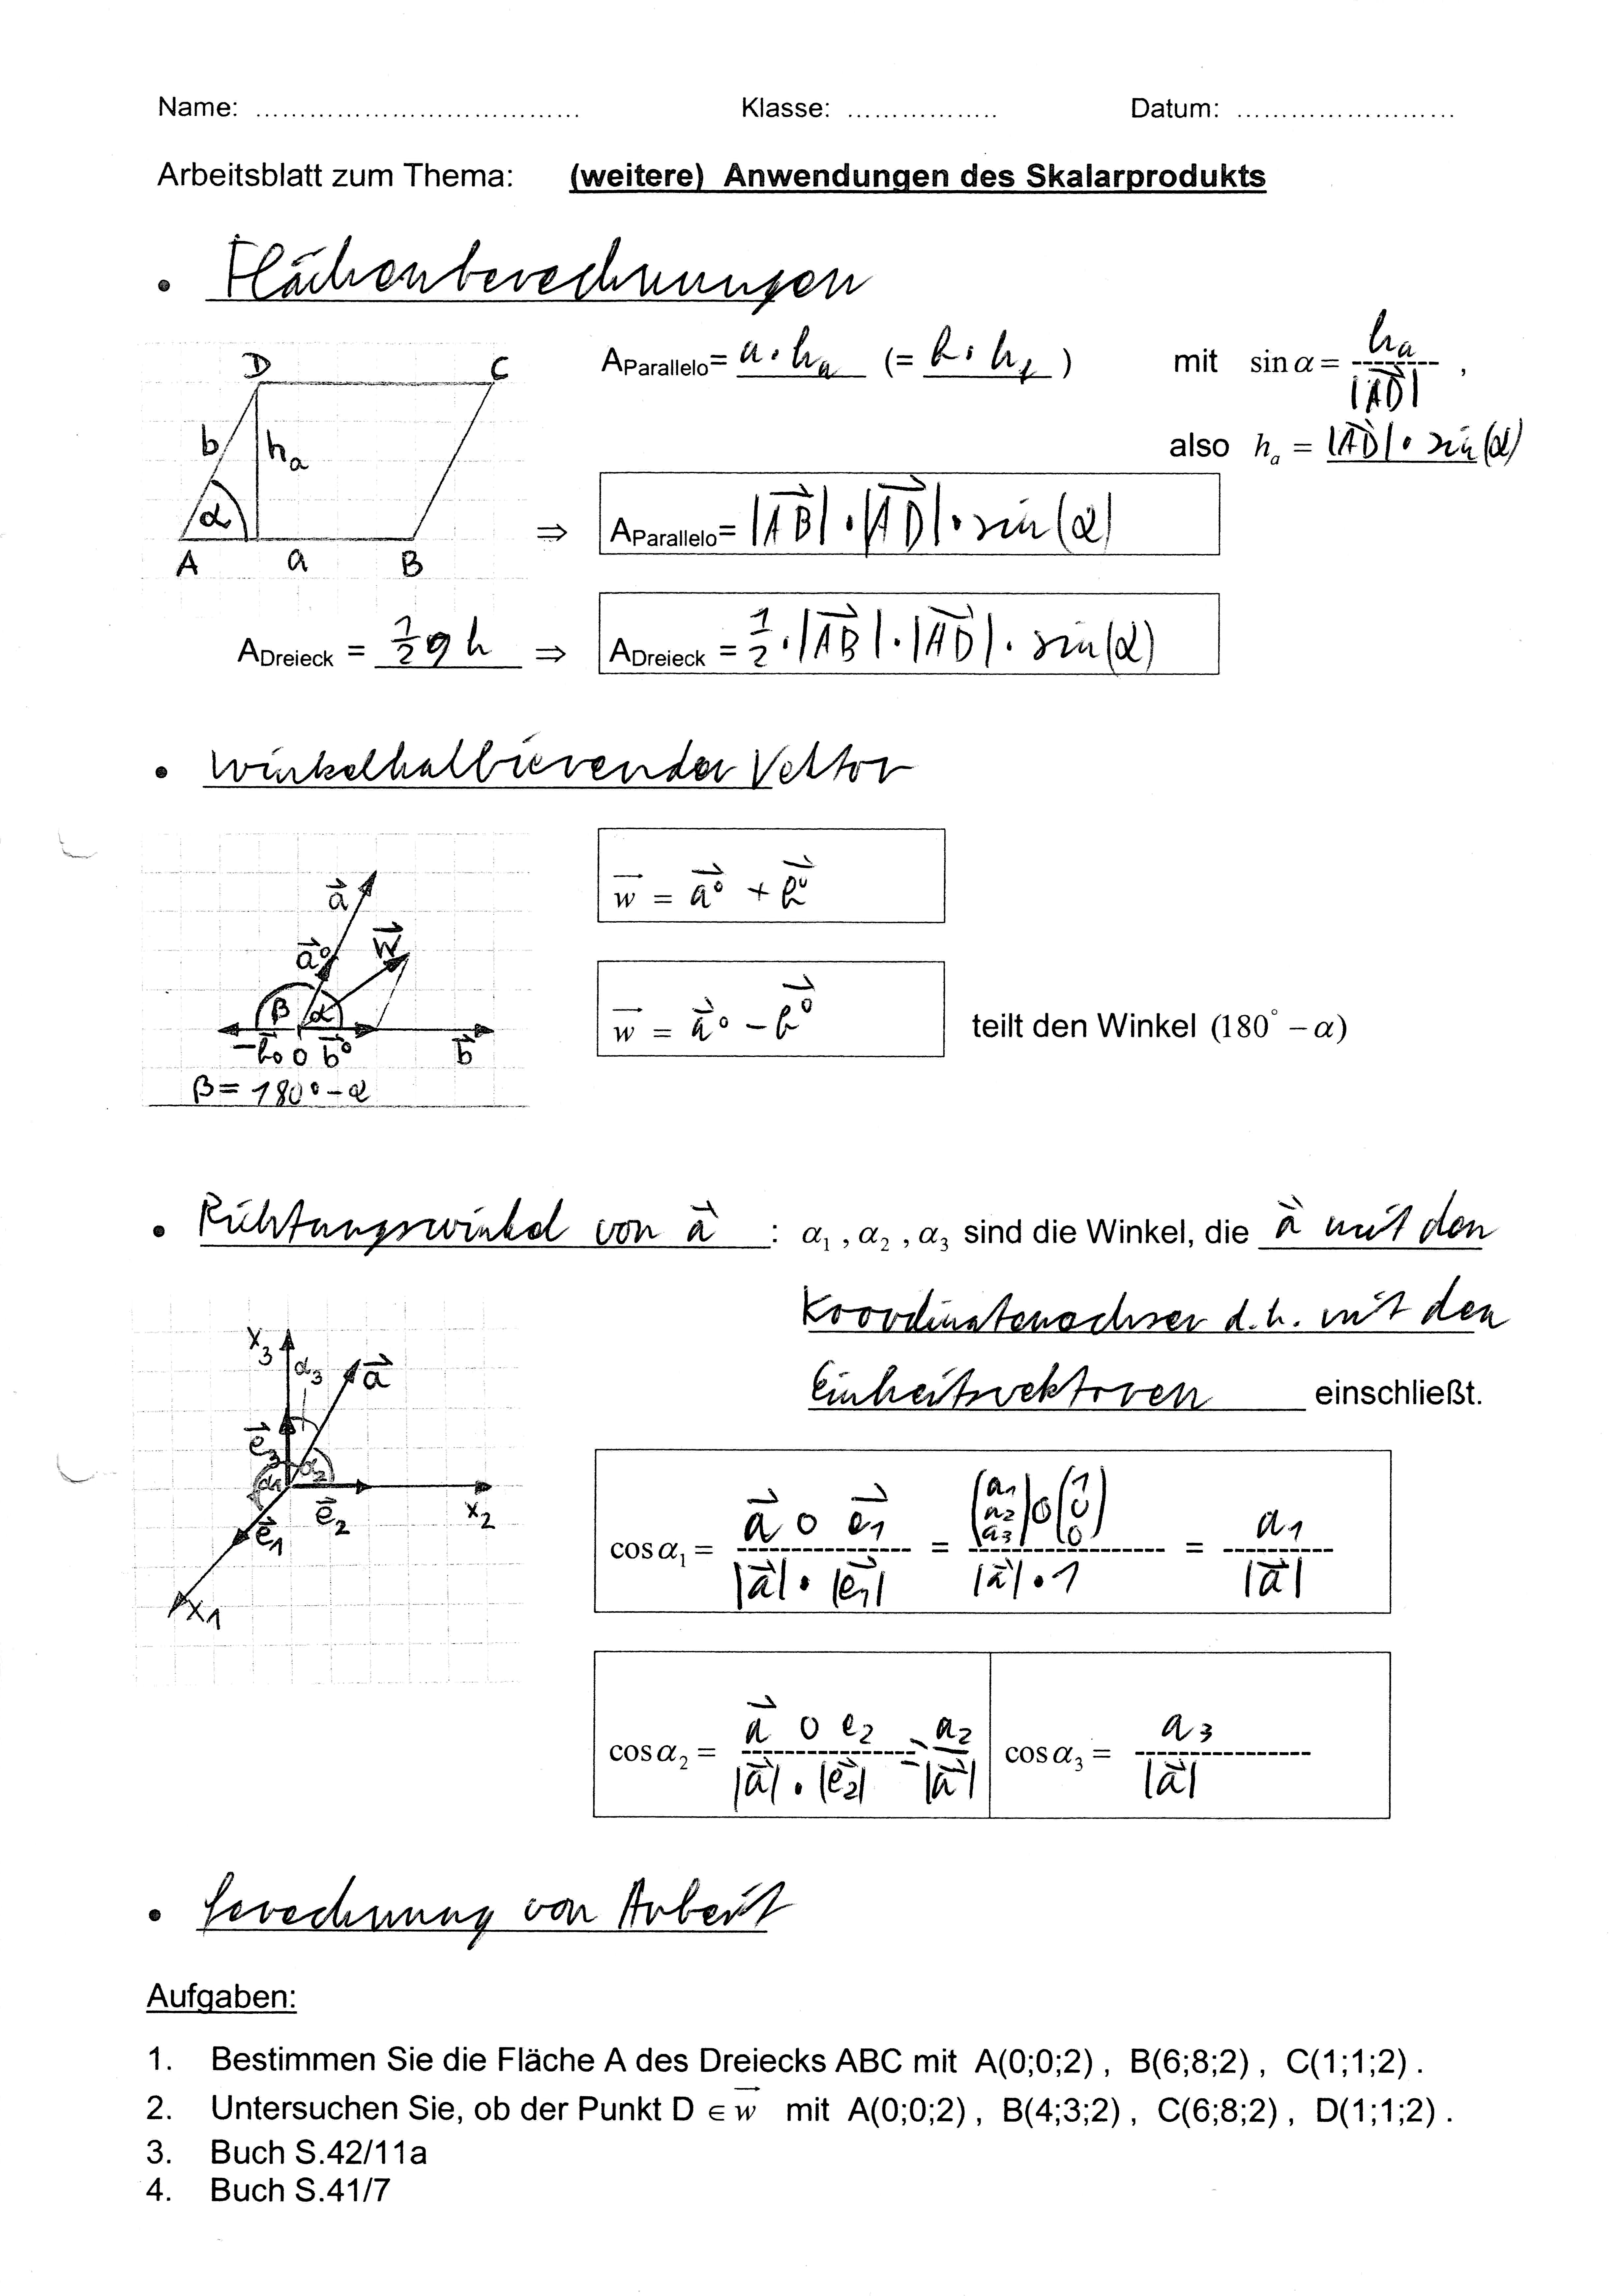 Name: .................................... Klasse: ................. Datum: ........................
Arbeitsblatt zum Thema: (weitere) Anwendungen des Skalarprodukts
• Flächenberechnungen
A_Parallelo = a · h_a (= b · h_b) mit sin α = h_a / |AD⃗| ,
also h_a = |AD⃗| · sin(α)
D C
b h_a
α
A a B
⇒ A_Parallelo = |AB⃗| · |AD⃗| · sin(α)
A_Dreieck = 1/2 g h ⇒ A_Dreieck = 1/2 · |AB⃗| · |AD⃗| · sin(α)
• Winkelhalbierender Vektor
w⃗ = a⃗° + b⃗°
a⃗
a⃗° w⃗
β α
-b⃗° 0 b⃗° b⃗
β = 180° - α
w⃗ = a⃗° - b⃗° teilt den Winkel (180° - α)
• Richtungswinkel von a⃗ : α₁ , α₂ , α₃ sind die Winkel, die a⃗ mit den
Koordinatenachsen d.h. mit den
Einheitsvektoren einschließt.
x₃ α₃ a⃗
e⃗₃
α₁ α₂
e⃗₁ e⃗₂ x₂
x₁
cos α₁ = (a⃗ o e⃗₁) / (|a⃗| · |e⃗₁|) = ((a₁ a₂ a₃) o (1 0 0)) / (|a⃗| · 1) = a₁ / |a⃗|
cos α₂ = (a⃗ o e₂) / (|a⃗| · |e⃗₂|) = a₂ / |a⃗| cos α₃ = a₃ / |a⃗|
• Berechnung von Arbeit
Aufgaben:
1. Bestimmen Sie die Fläche A des Dreiecks ABC mit A(0;0;2) , B(6;8;2) , C(1;1;2) .
2. Untersuchen Sie, ob der Punkt D ∈ w⃗ mit A(0;0;2) , B(4;3;2) , C(6;8;2) , D(1;1;2) .
3. Buch S.42/11a
4. Buch S.41/7